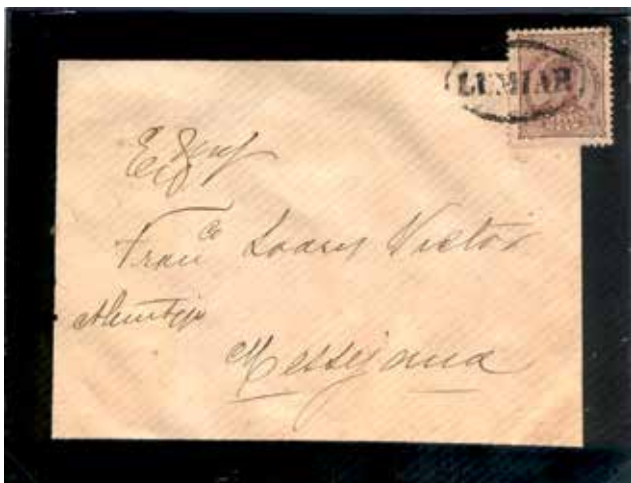 LUMIAR
Fran^co Soares Victor
Alemtejo
Messejana